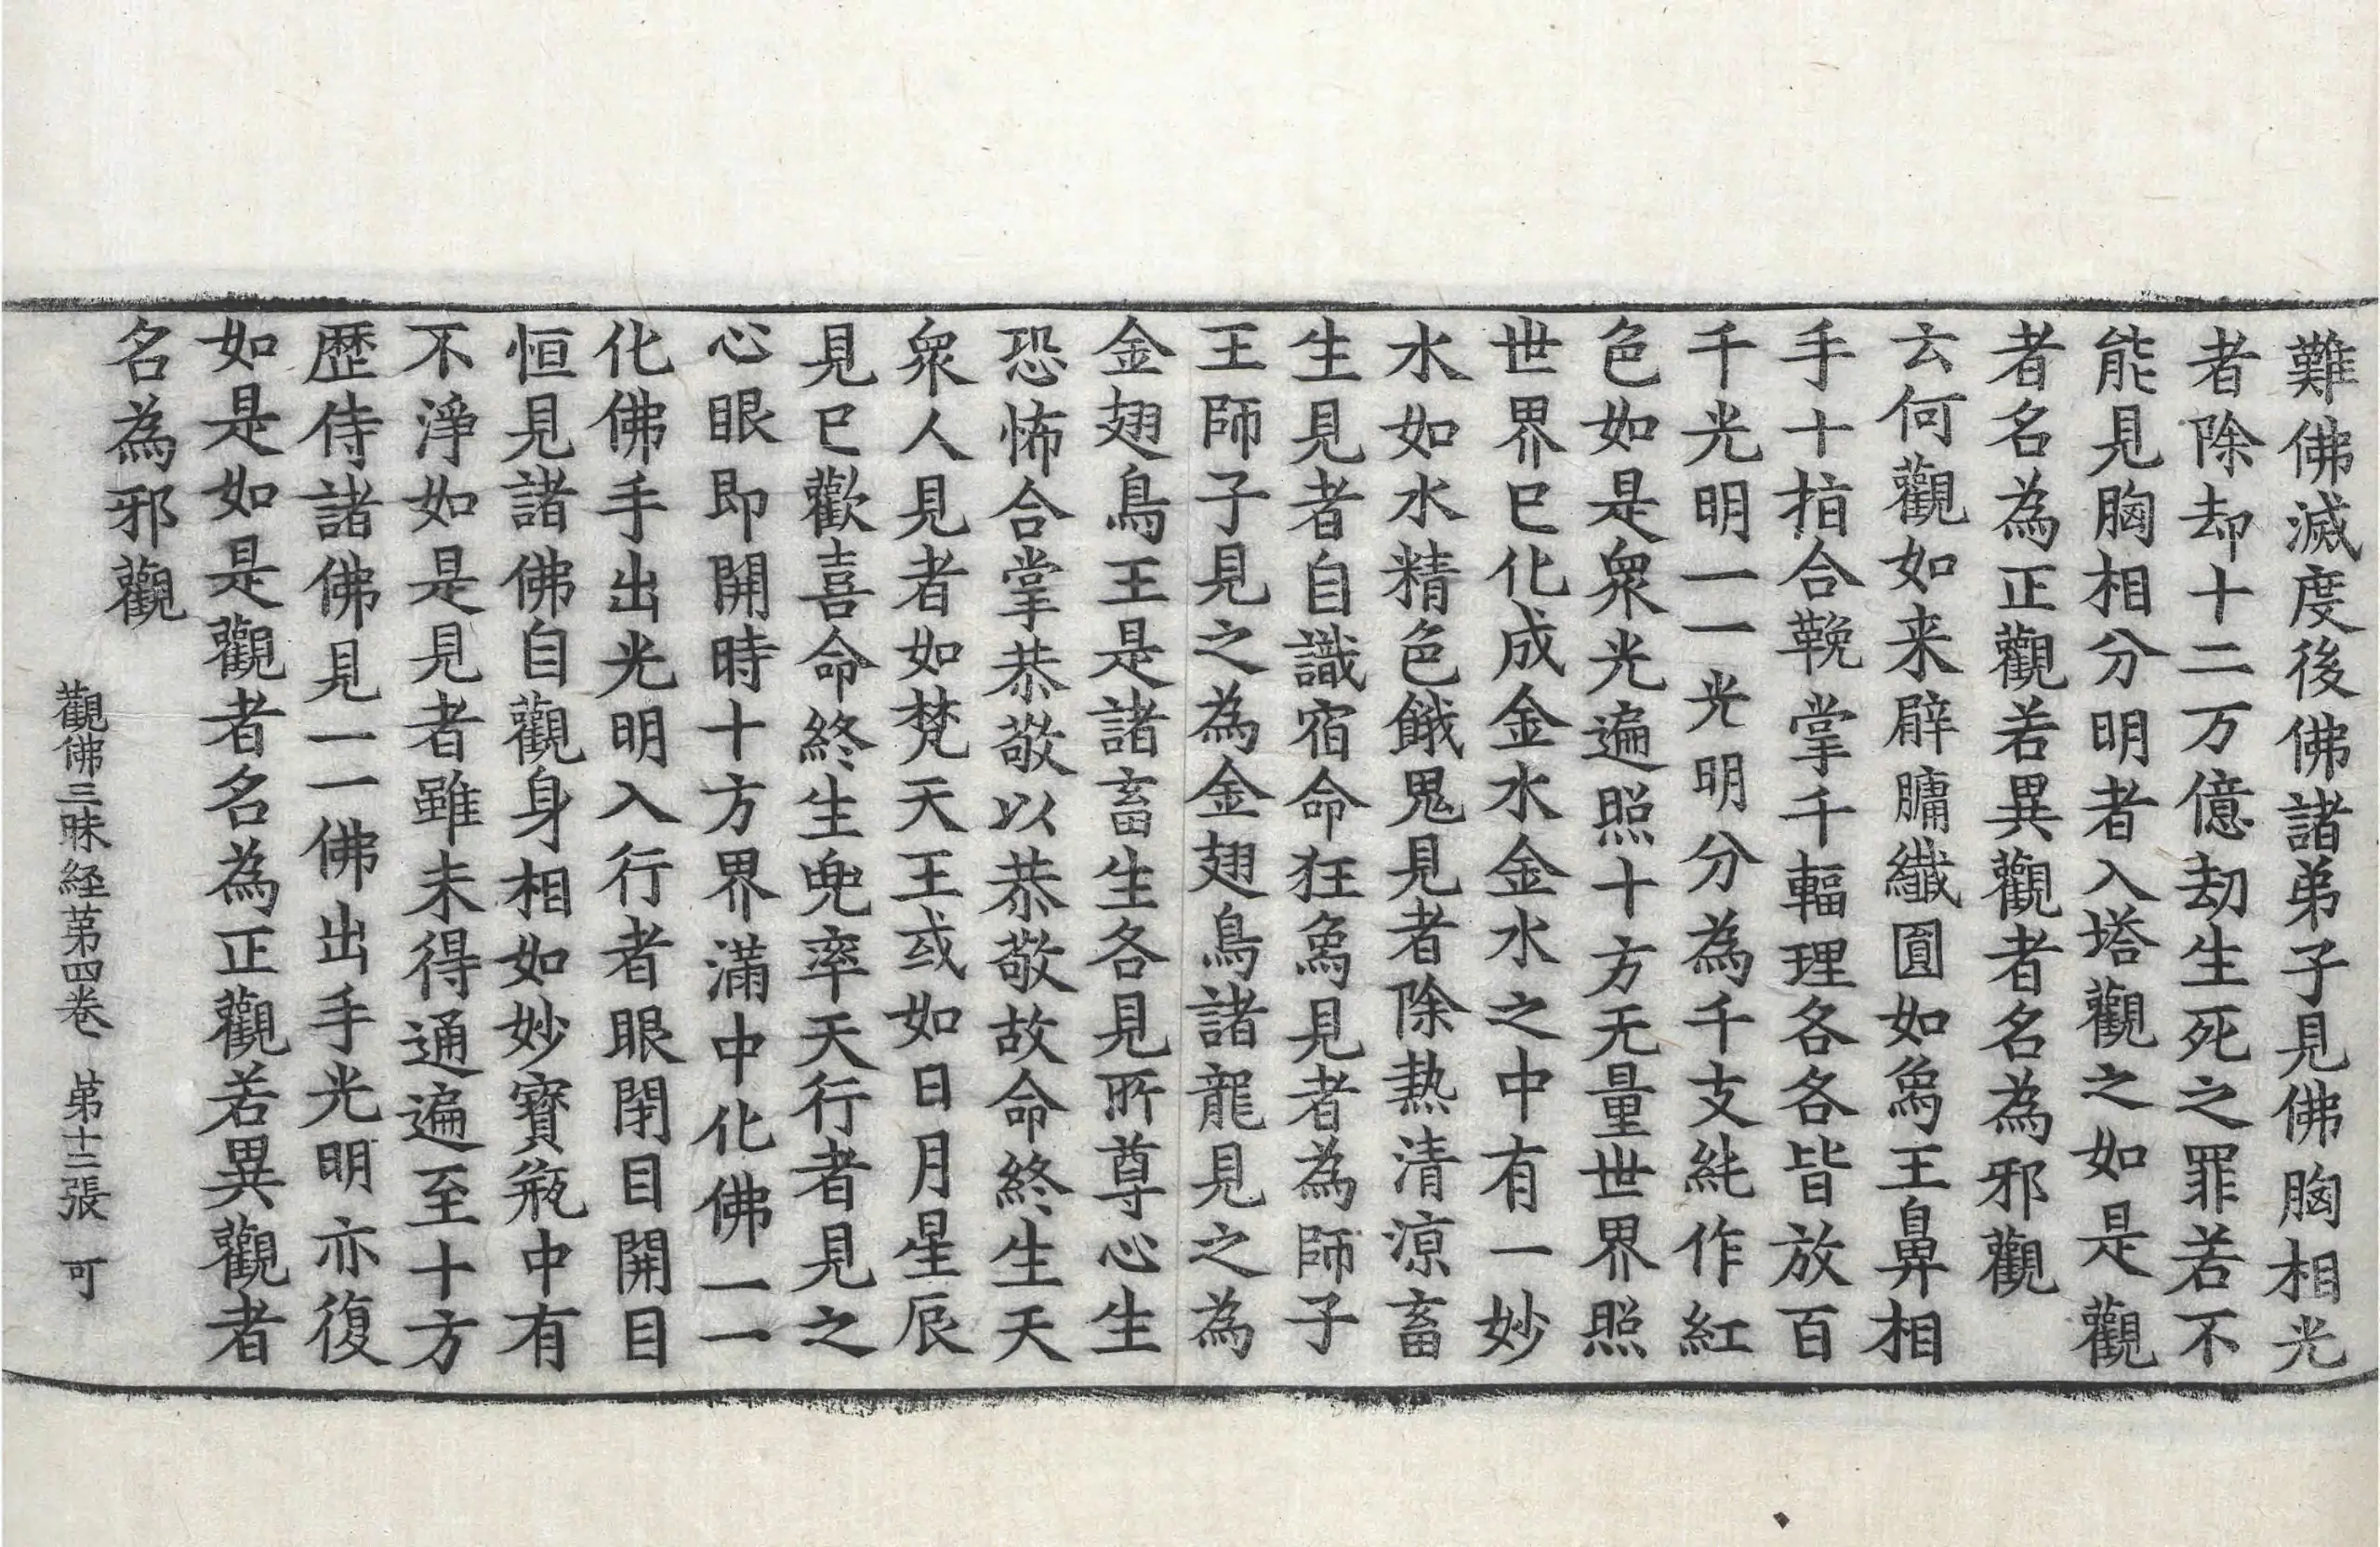 難佛滅度後佛諸弟子見佛胸相光
者除却十二万億劫生死之罪若不
能見胸相分明者入塔觀之如是觀
者名為正觀若異觀者名為邪觀
云何觀如来臂𦟛纖圓如象王鼻相
手十指合鞔掌千輻理各各皆放百
千光明一一光明分為千支純作紅
色如是衆光遍照十方无量世界照
世界已化成金水金水之中有一妙
水如水精色餓鬼見者除热清涼畜
生見者自識宿命狂象見者為師子
王師子見之為金翅鳥諸龍見之為
金翅鳥王是諸畜生各見所尊心生
恐怖合掌恭敬以恭敬故命終生天
衆人見者如梵天王或如日月星辰
見已歡喜命終生兜率天行者見之
心眼即開時十方界滿中化佛一一
化佛手出光明入行者眼閉目開目
恒見諸佛自觀身相如妙寶瓶中有
不淨如是見者雖未得通遍至十方
歷侍諸佛見一一佛出手光明亦復
如是如是觀者名為正觀若異觀者
名為邪觀
觀佛三昧経第四卷 第十二張 可